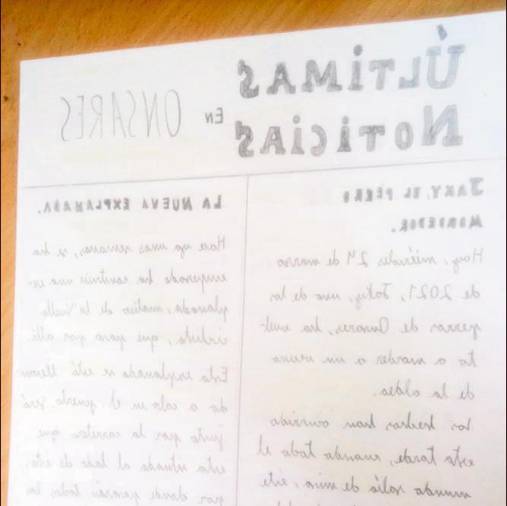 ÚLTIMAS
NOTICIAS
EN ONSARES
JAKY, EL PERRO
MORDEDOR.
Hoy, miércoles 24 de marzo
de 2021, Jaky, uno de los
perros de Onsares, ha vuel-
to a morder a un vecino
de la aldea.
Los hechos han ocurrido
esta tarde, cuando todo el
mundo salía de misa, este
LA NUEVA EXPLANADA.
Hace ya unas semanas, se ha
empezado ha construir una ex-
planada, motivo de la Vuelta
ciclista, que pasa por allí.
Esta explanada se está llevan-
do a cabo en el puente, será
justo por la carretera que
esta situada al lado de este,
por donde pasarán todos los